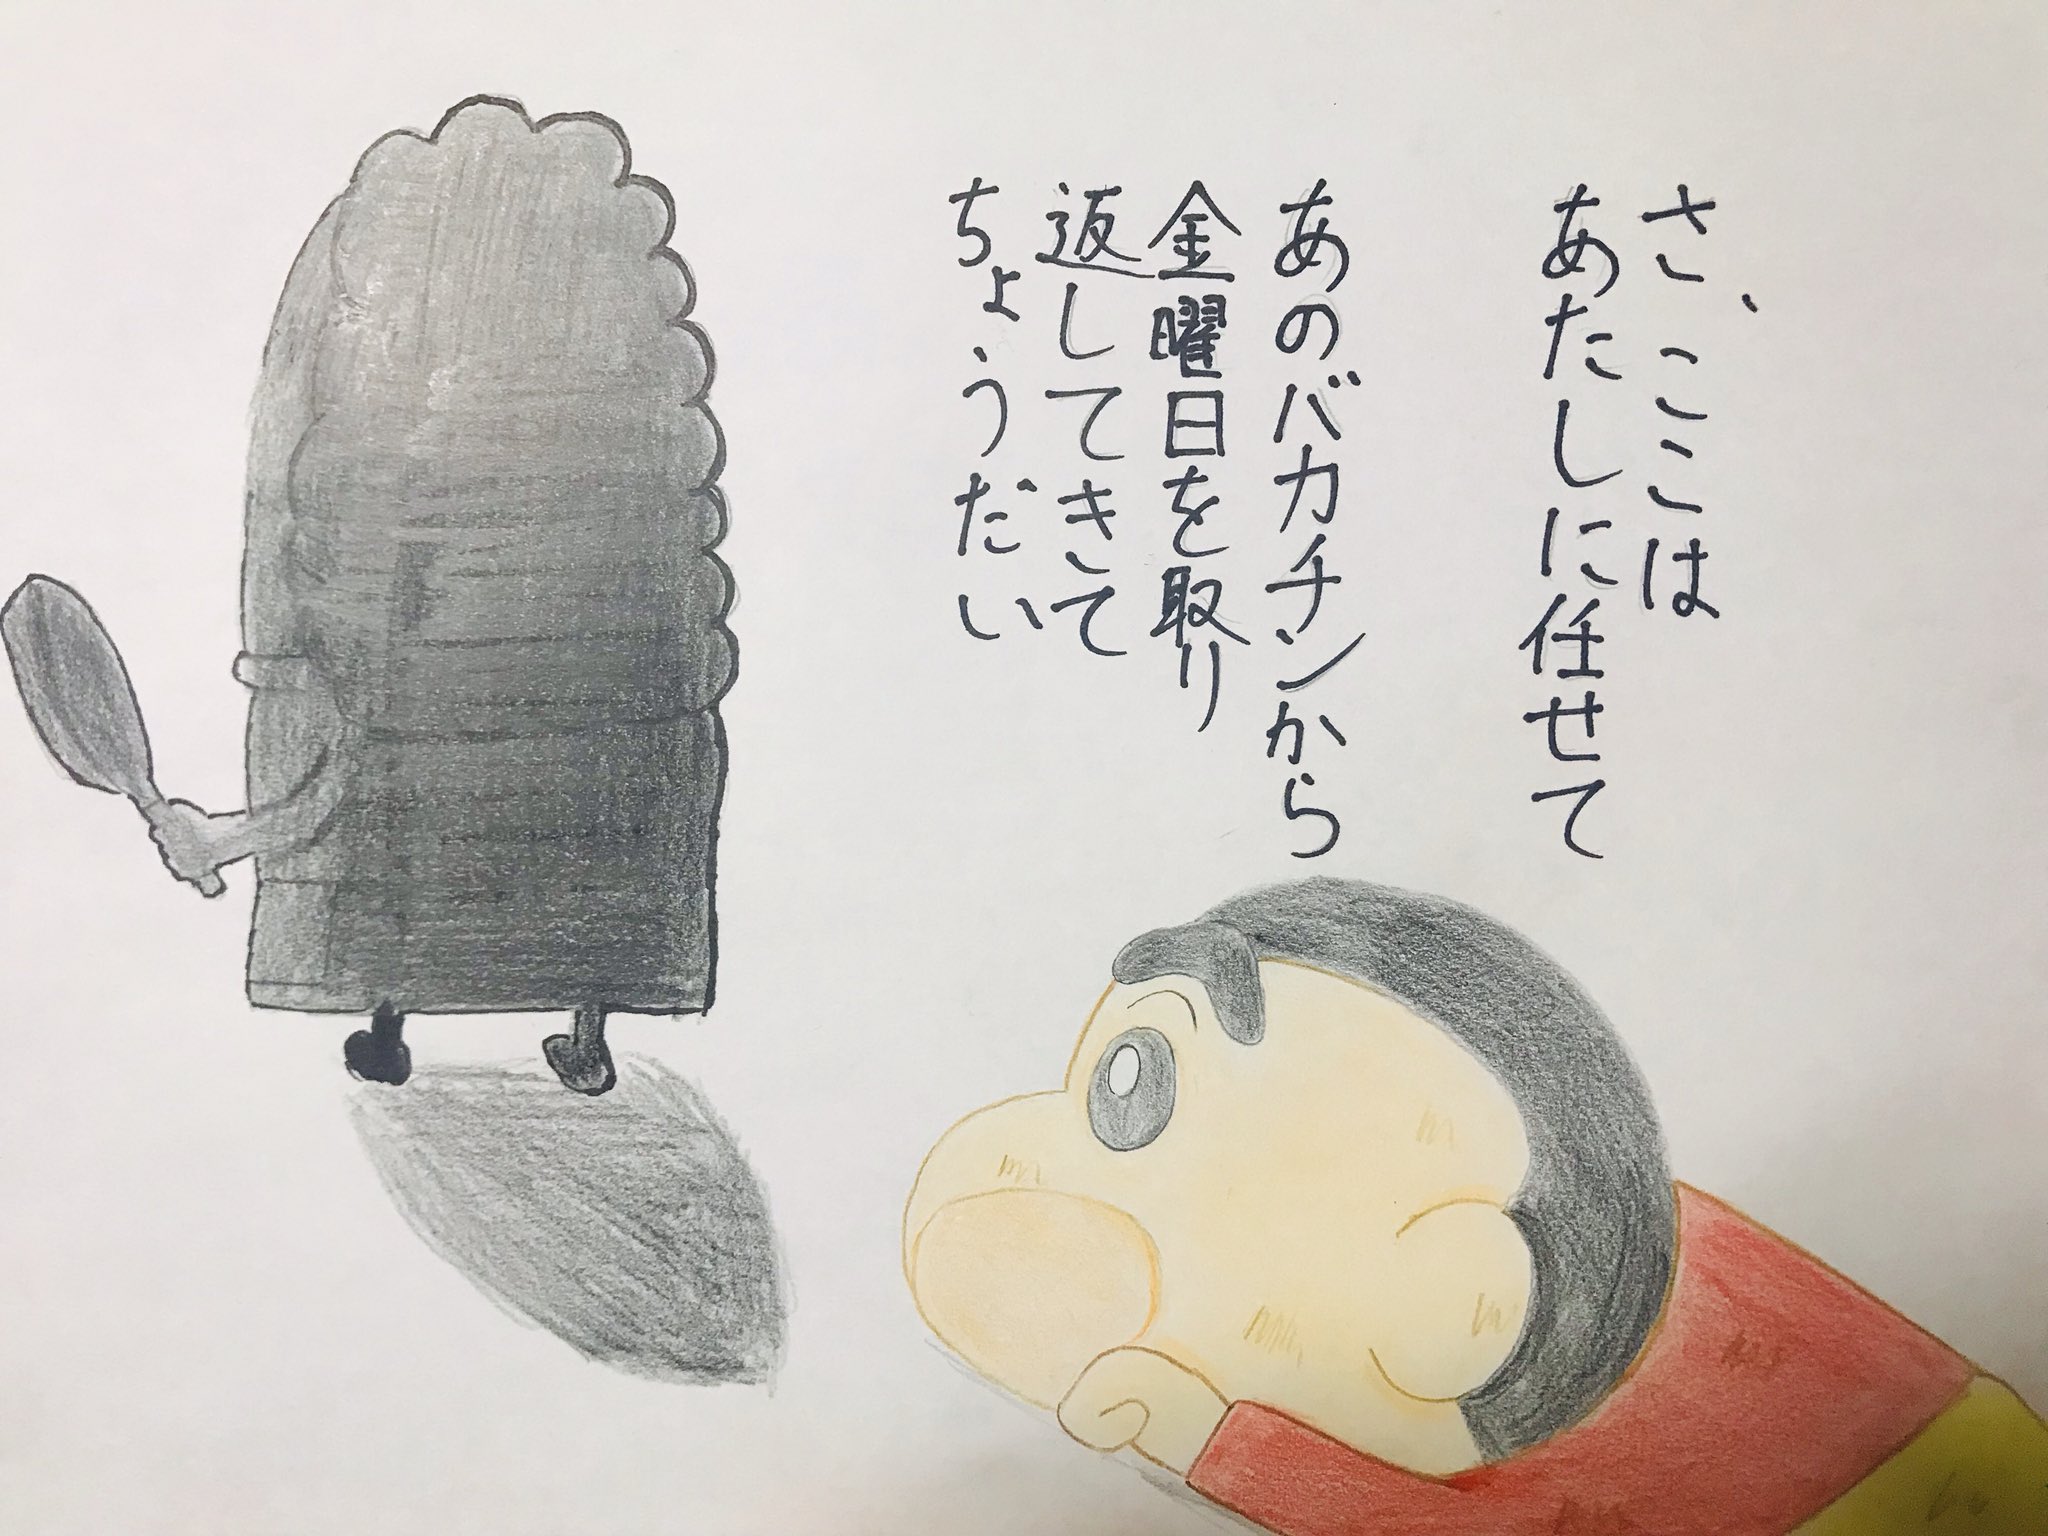 さ、ここは
あたしに任せて
あのバカチンから
金曜日を取り
返してきて
ちょうだい